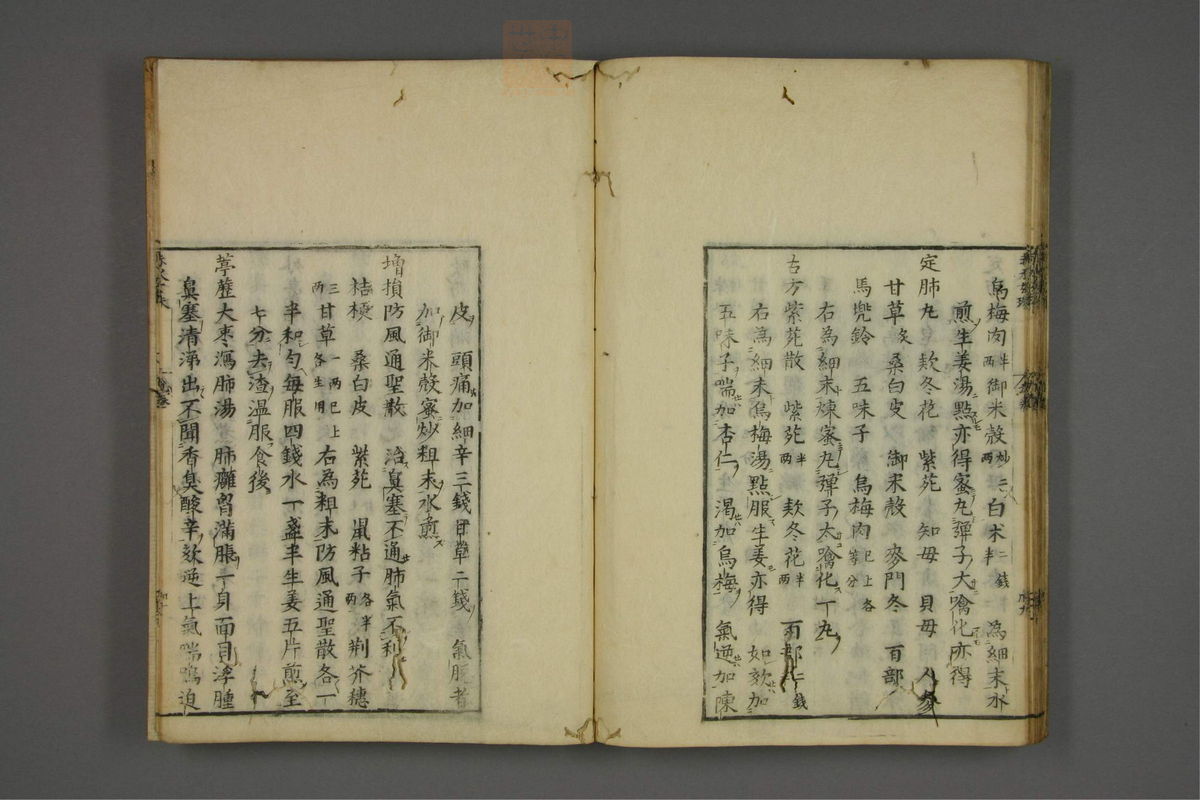 烏梅肉半兩御米殼炒二兩白朮二錢半為細末水
煎生姜湯點亦得蜜丸彈子大噙化亦得
定肺丸 欵冬花 紫菀 知母 貝母 人參
甘草炙 桑白皮 御米殼 麥門冬 百部
馬兜鈴 五味子 烏梅肉已上各等分
右為細末煉蜜丸彈子大噙化一丸
古方紫菀散 紫菀半兩 欵冬花半兩 百部二錢
右為細末烏梅湯點服生姜亦得 如欬加
五味子喘加杏仁 渴加烏梅 氣逆加陳
皮 頭痛加細辛三錢甘草二錢 氣脹者
加御米殼蜜炒粗末水煎
增損防風通聖散 治鼻塞不通肺氣不利
桔梗 桑白皮 紫菀 鼠粘子各半兩荆芥穗
三兩甘草一兩已上各生用右為粗末防風通聖散各一
半和勻每服四錢水一盞半生姜五片煎至
七分去渣溫服食後
葶藶大棗瀉肺湯 肺癰胷滿脹一身面目浮腫
鼻塞清涕出不聞香臭酸辛欬逆上氣喘鳴迫